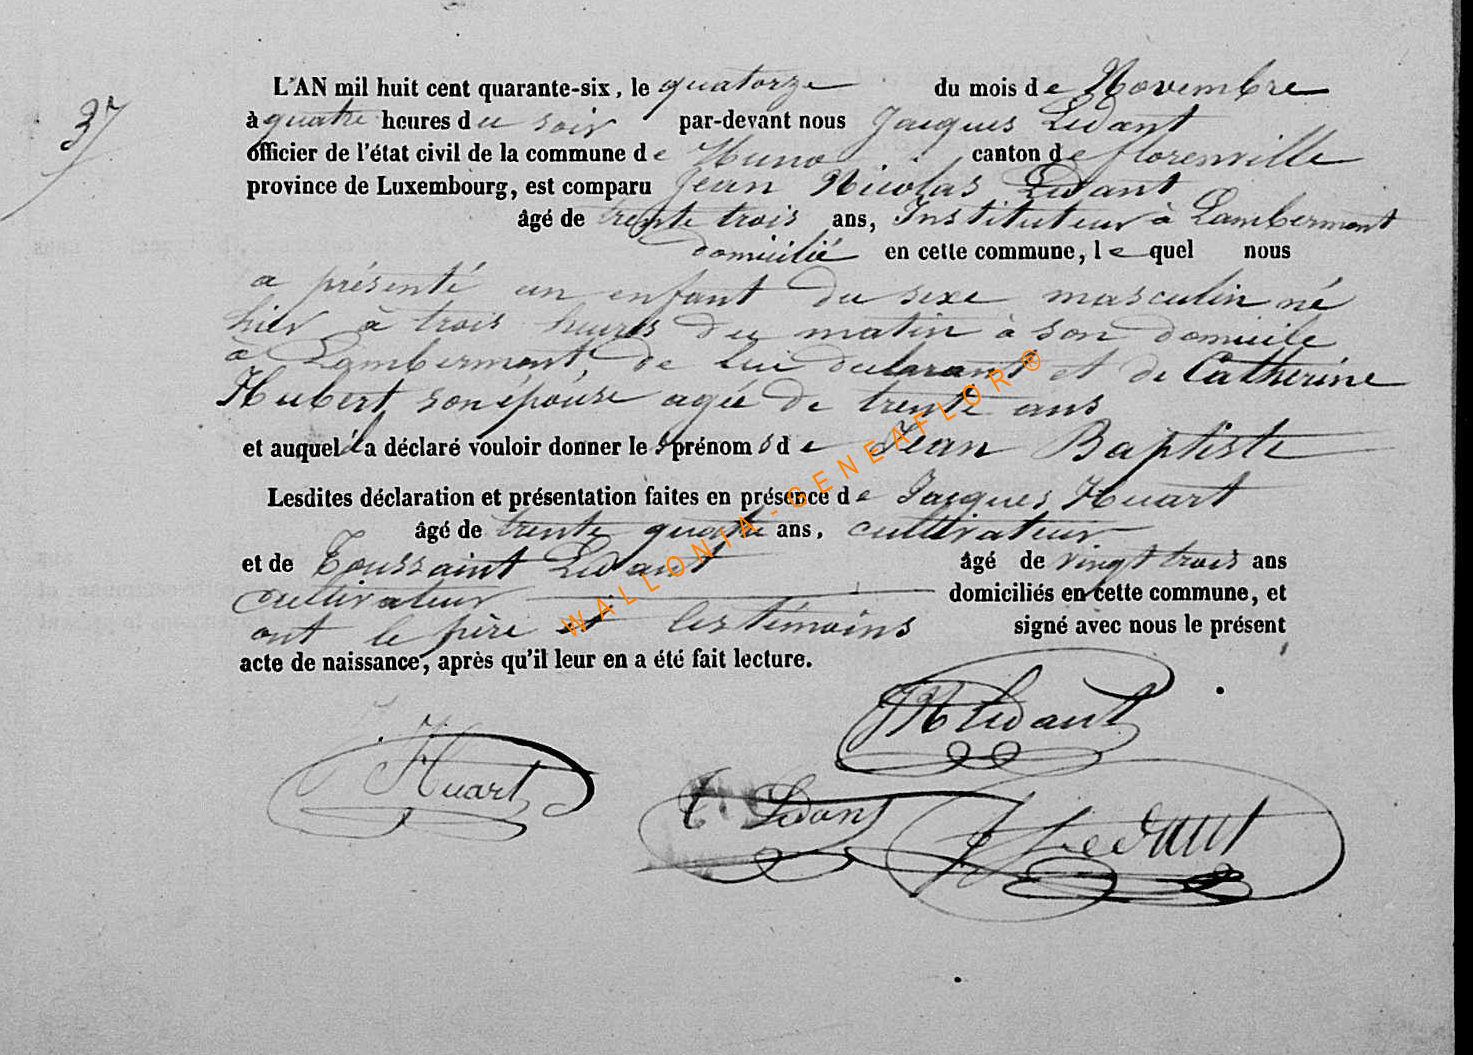 37
L'AN mil huit cent quarante-six, le quatorze du mois de Novembre
à quatre heures du soir par-devant nous Jacques Ledant
officier de l'état civil de la commune de Muno canton de florenville
province de Luxembourg, est comparu Jean Nicolas Ledant
âgé de trente trois ans, Instituteur à Lambermont
domicilié en cette commune, lequel nous
a présenté un enfant du sexe masculin né
hier à trois heures du matin à son domicile
à Lambermont, de lui déclarant et de Catherine
Hubert son épouse agée de trente ans
et auquel il a déclaré vouloir donner les prénoms de Jean Baptiste
Lesdites déclaration et présentation faites en présence de Jacques Huart
âgé de trente quatre ans, cultivateur
et de Toussaint Ledant âgé de vingt trois ans
cultivateur domiciliés en cette commune, et
ont le père et les témoins signé avec nous le présent
acte de naissance, après qu'il leur en a été fait lecture.
JN Ledant
J Huart
T Ledant
J Ledant
WALLONIA-GENEAFLOR®